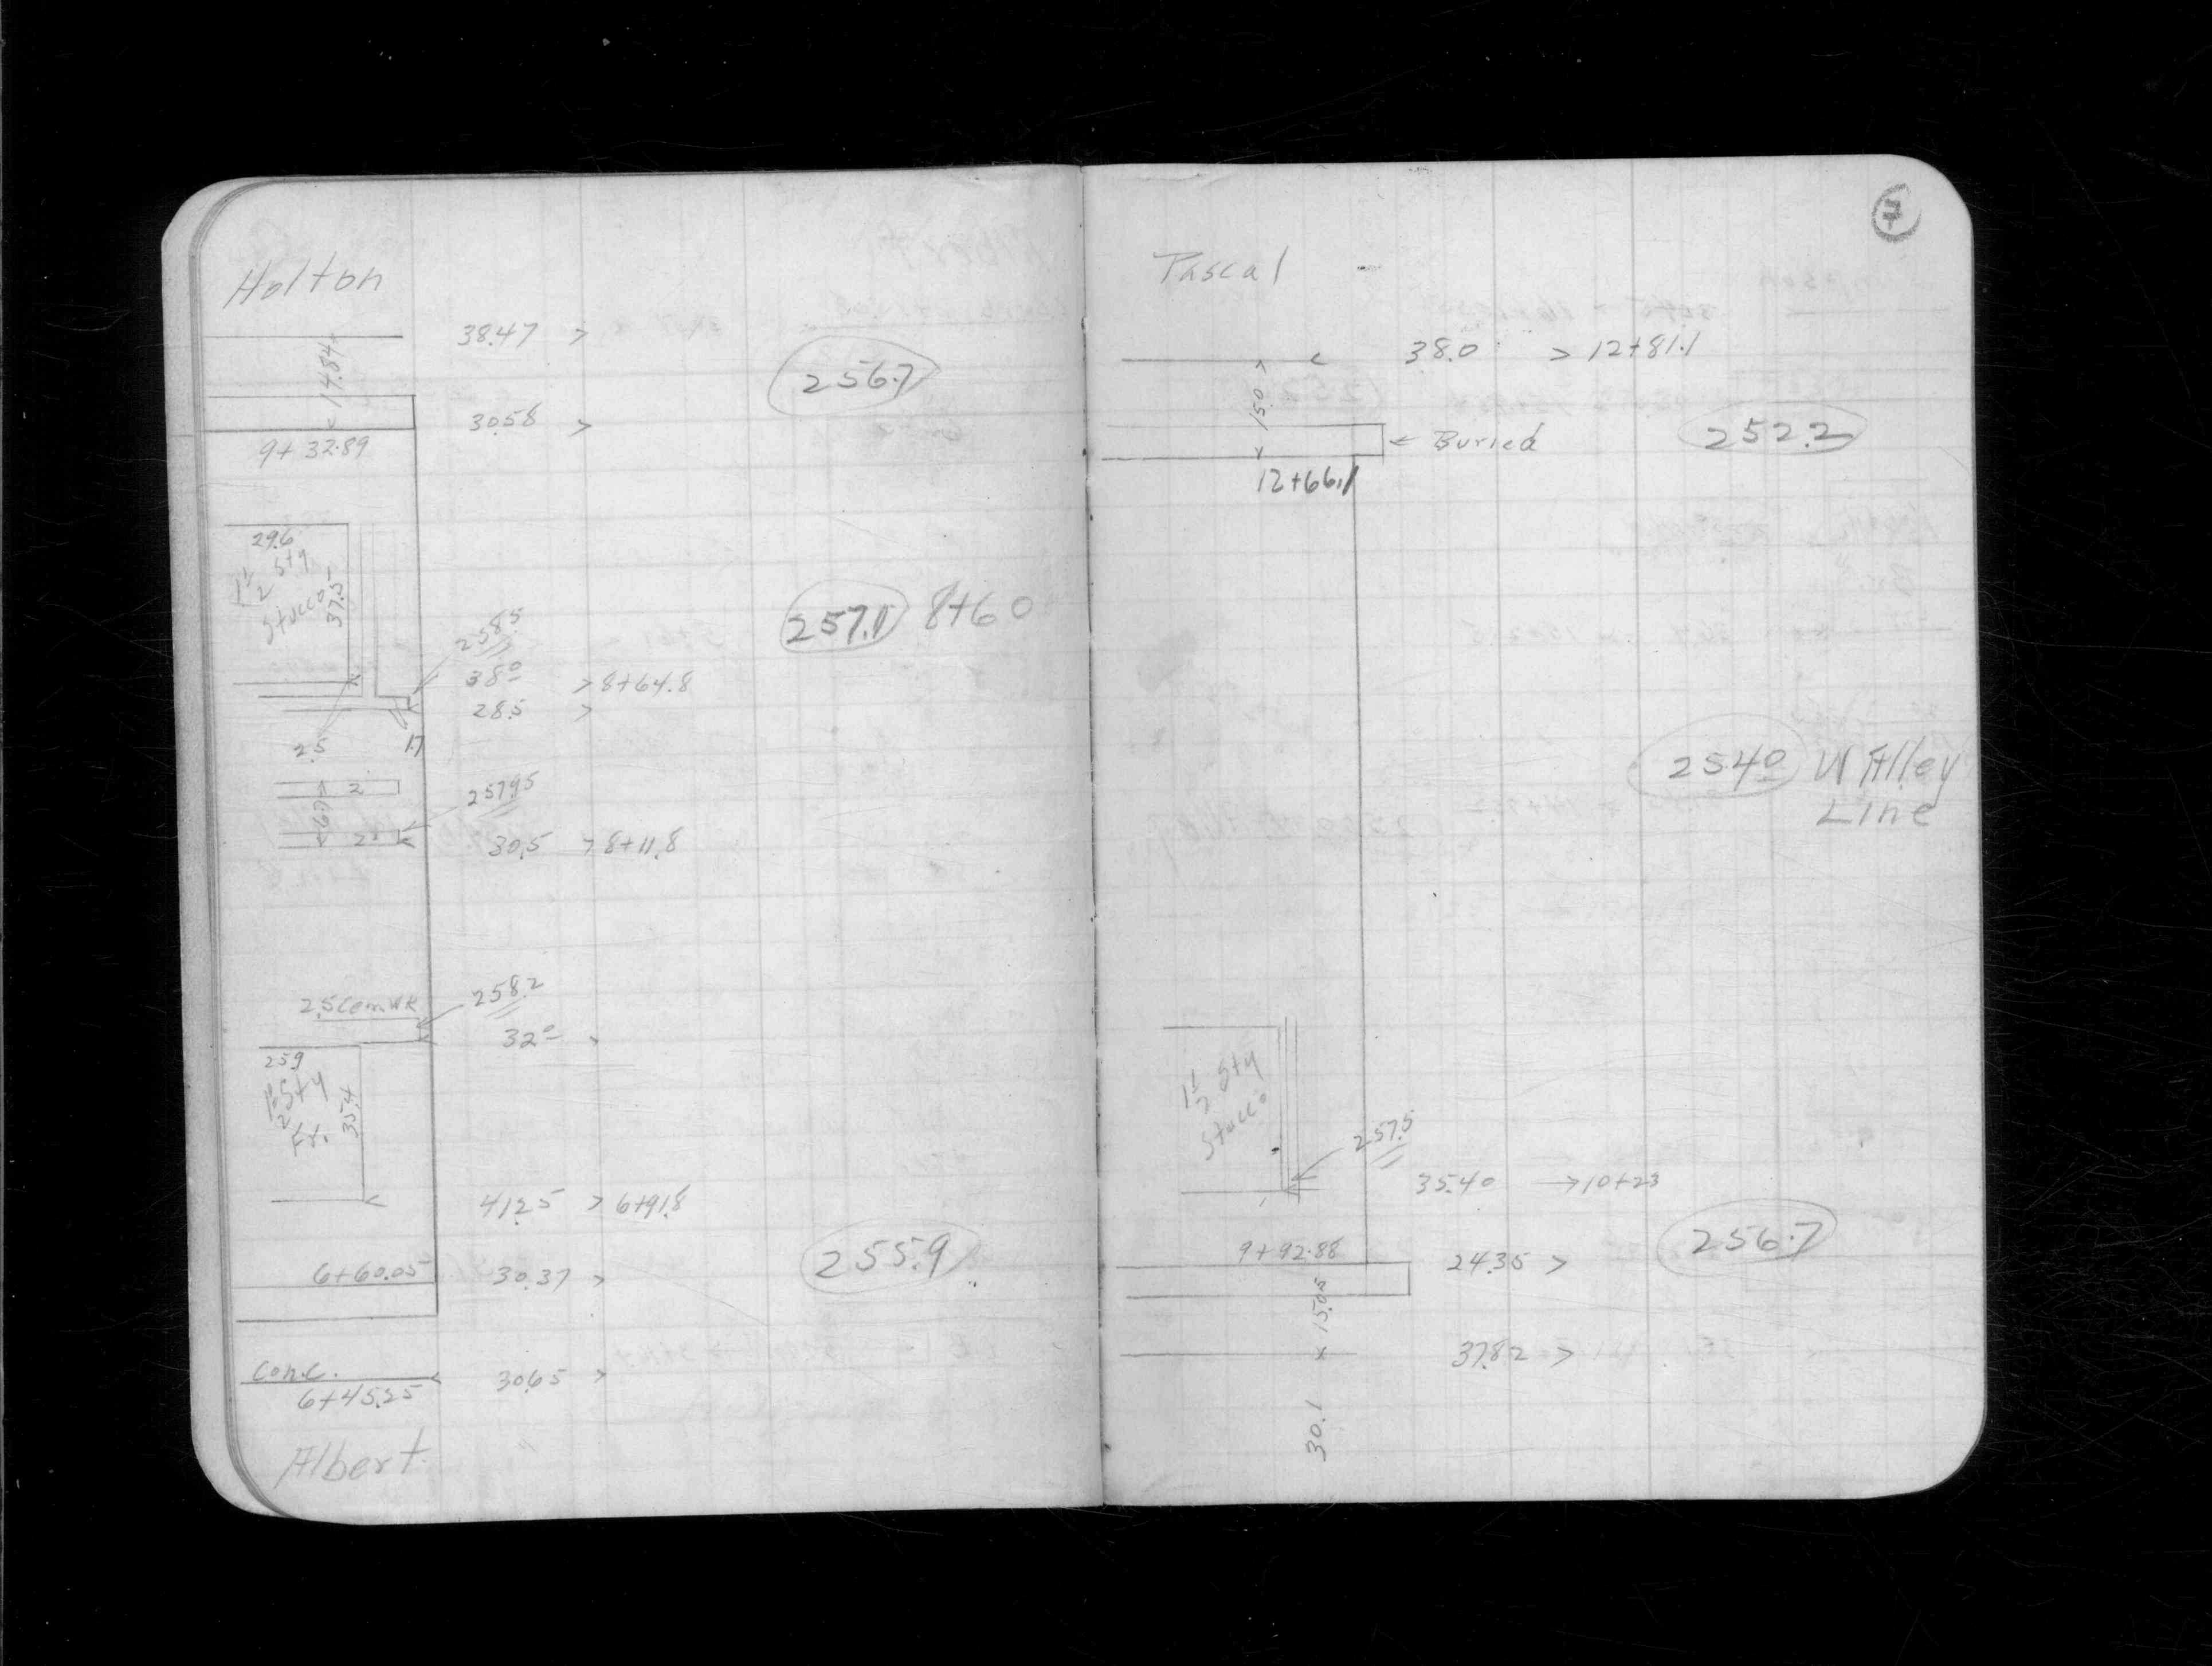 Holton
38.47 >
14.84
256.7
30.58 >
9+32.89
29.6
1 1/2 Sty
Stucco
37.5
257.1 8+60
258.5
38.0 > 8+64.8
28.5 >
2.5 1.7
2
257.95
6.9
2
30.5 > 8+11.8
2.5 Cem WK
258.2
32.0
25.9
1 1/2 Sty
Fr.
35.4
41.25 > 6+91.8
255.9
6+60.05
30.37 >
Conc.
30.65 >
6+45.25
Albert
7
Pascal
38.0 > 12+81.1
15.0
← Buried
252.2
12+66.1
254.0 W Alley
Line
1 1/2 Sty
Stucco
257.5
35.40 → 10+23
256.7
9+92.88
24.35 >
15.05
37.82 >
30.1